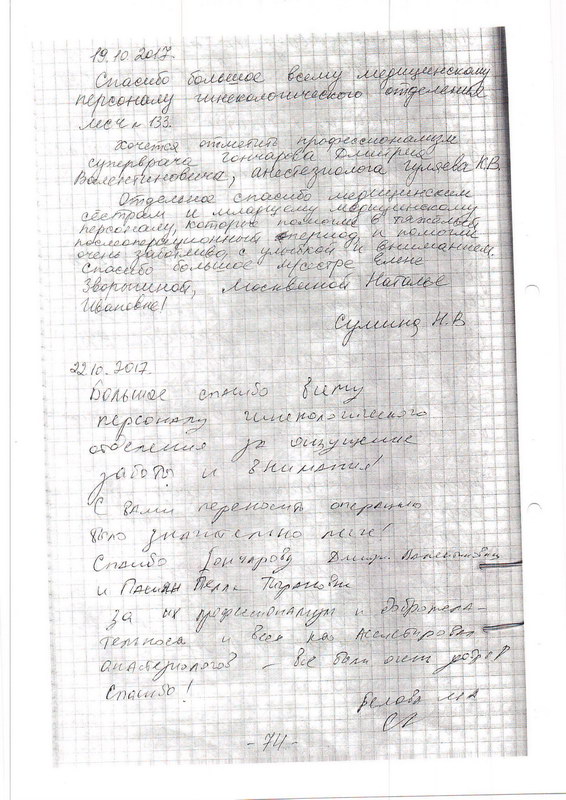 19.10.2017.
Спасибо большое всему медицинскому
персоналу гинекологического отделения
МСЧ № 133.
Хочется отметить профессионализм
суперврача Гончарова Дмитрия
Валентиновича, анестезиолога Гуляева К.В.
Отдельное спасибо медицинским
сёстрам и младшему медицинскому
персоналу, которые помогли в тяжелый
послеоперационный период и помогли
очень заботливо, с улыбкой и вниманием.
Спасибо большое м/сестре Елене
Зворыгиной, Москвиной Наталье
Ивановне!
Сумина Н.В
22.10.2017.
Большое спасибо всему
персоналу гинекологического
отделения за ощущение
заботы и внимания!
С вами переносить операцию
было значительно легче!
Спасибо Гончарову Дмитр. Валентинович
и
за их профессионализм и доброжела-
и всех
анастезиологов – все были очень
Спасибо!
Белова
- 74 -